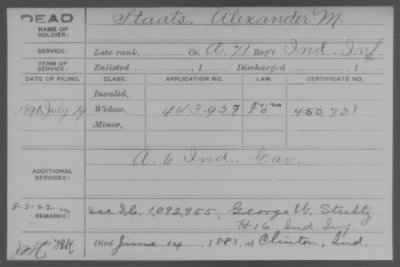 DEAD
NAME OF SOLDIER: Staats, Alexander M.
SERVICE: Late rank, Co. A, 71 Reg't Ind. Inf
TERM OF SERVICE: Enlisted , 1 Discharged , 1
DATE OF FILING. CLASS. APPLICATION NO. LAW. CERTIFICATE NO.
Invalid,
1890 July 14 Widow, 443.928 450.729
Minor,
ADDITIONAL SERVICES: A. 6 Ind. Cav.
8-3-22
REMARKS: see I.C. 1,092,955, George W. Stultz
H 16 Ind Inf
Died June 14, 1883, at Clinton, Ind.